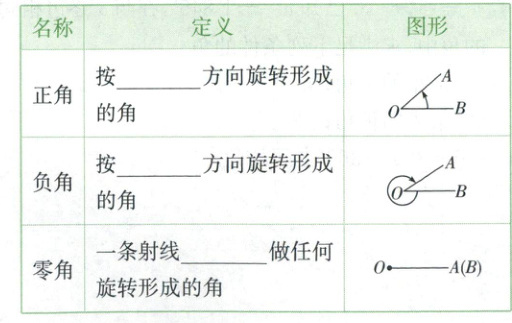 名称 定义 图形
正角 按________方向旋转形成
的角
A
O B
负角 按________方向旋转形成
的角
A
O B
零角 一条射线________做任何
旋转形成的角
O A(B)